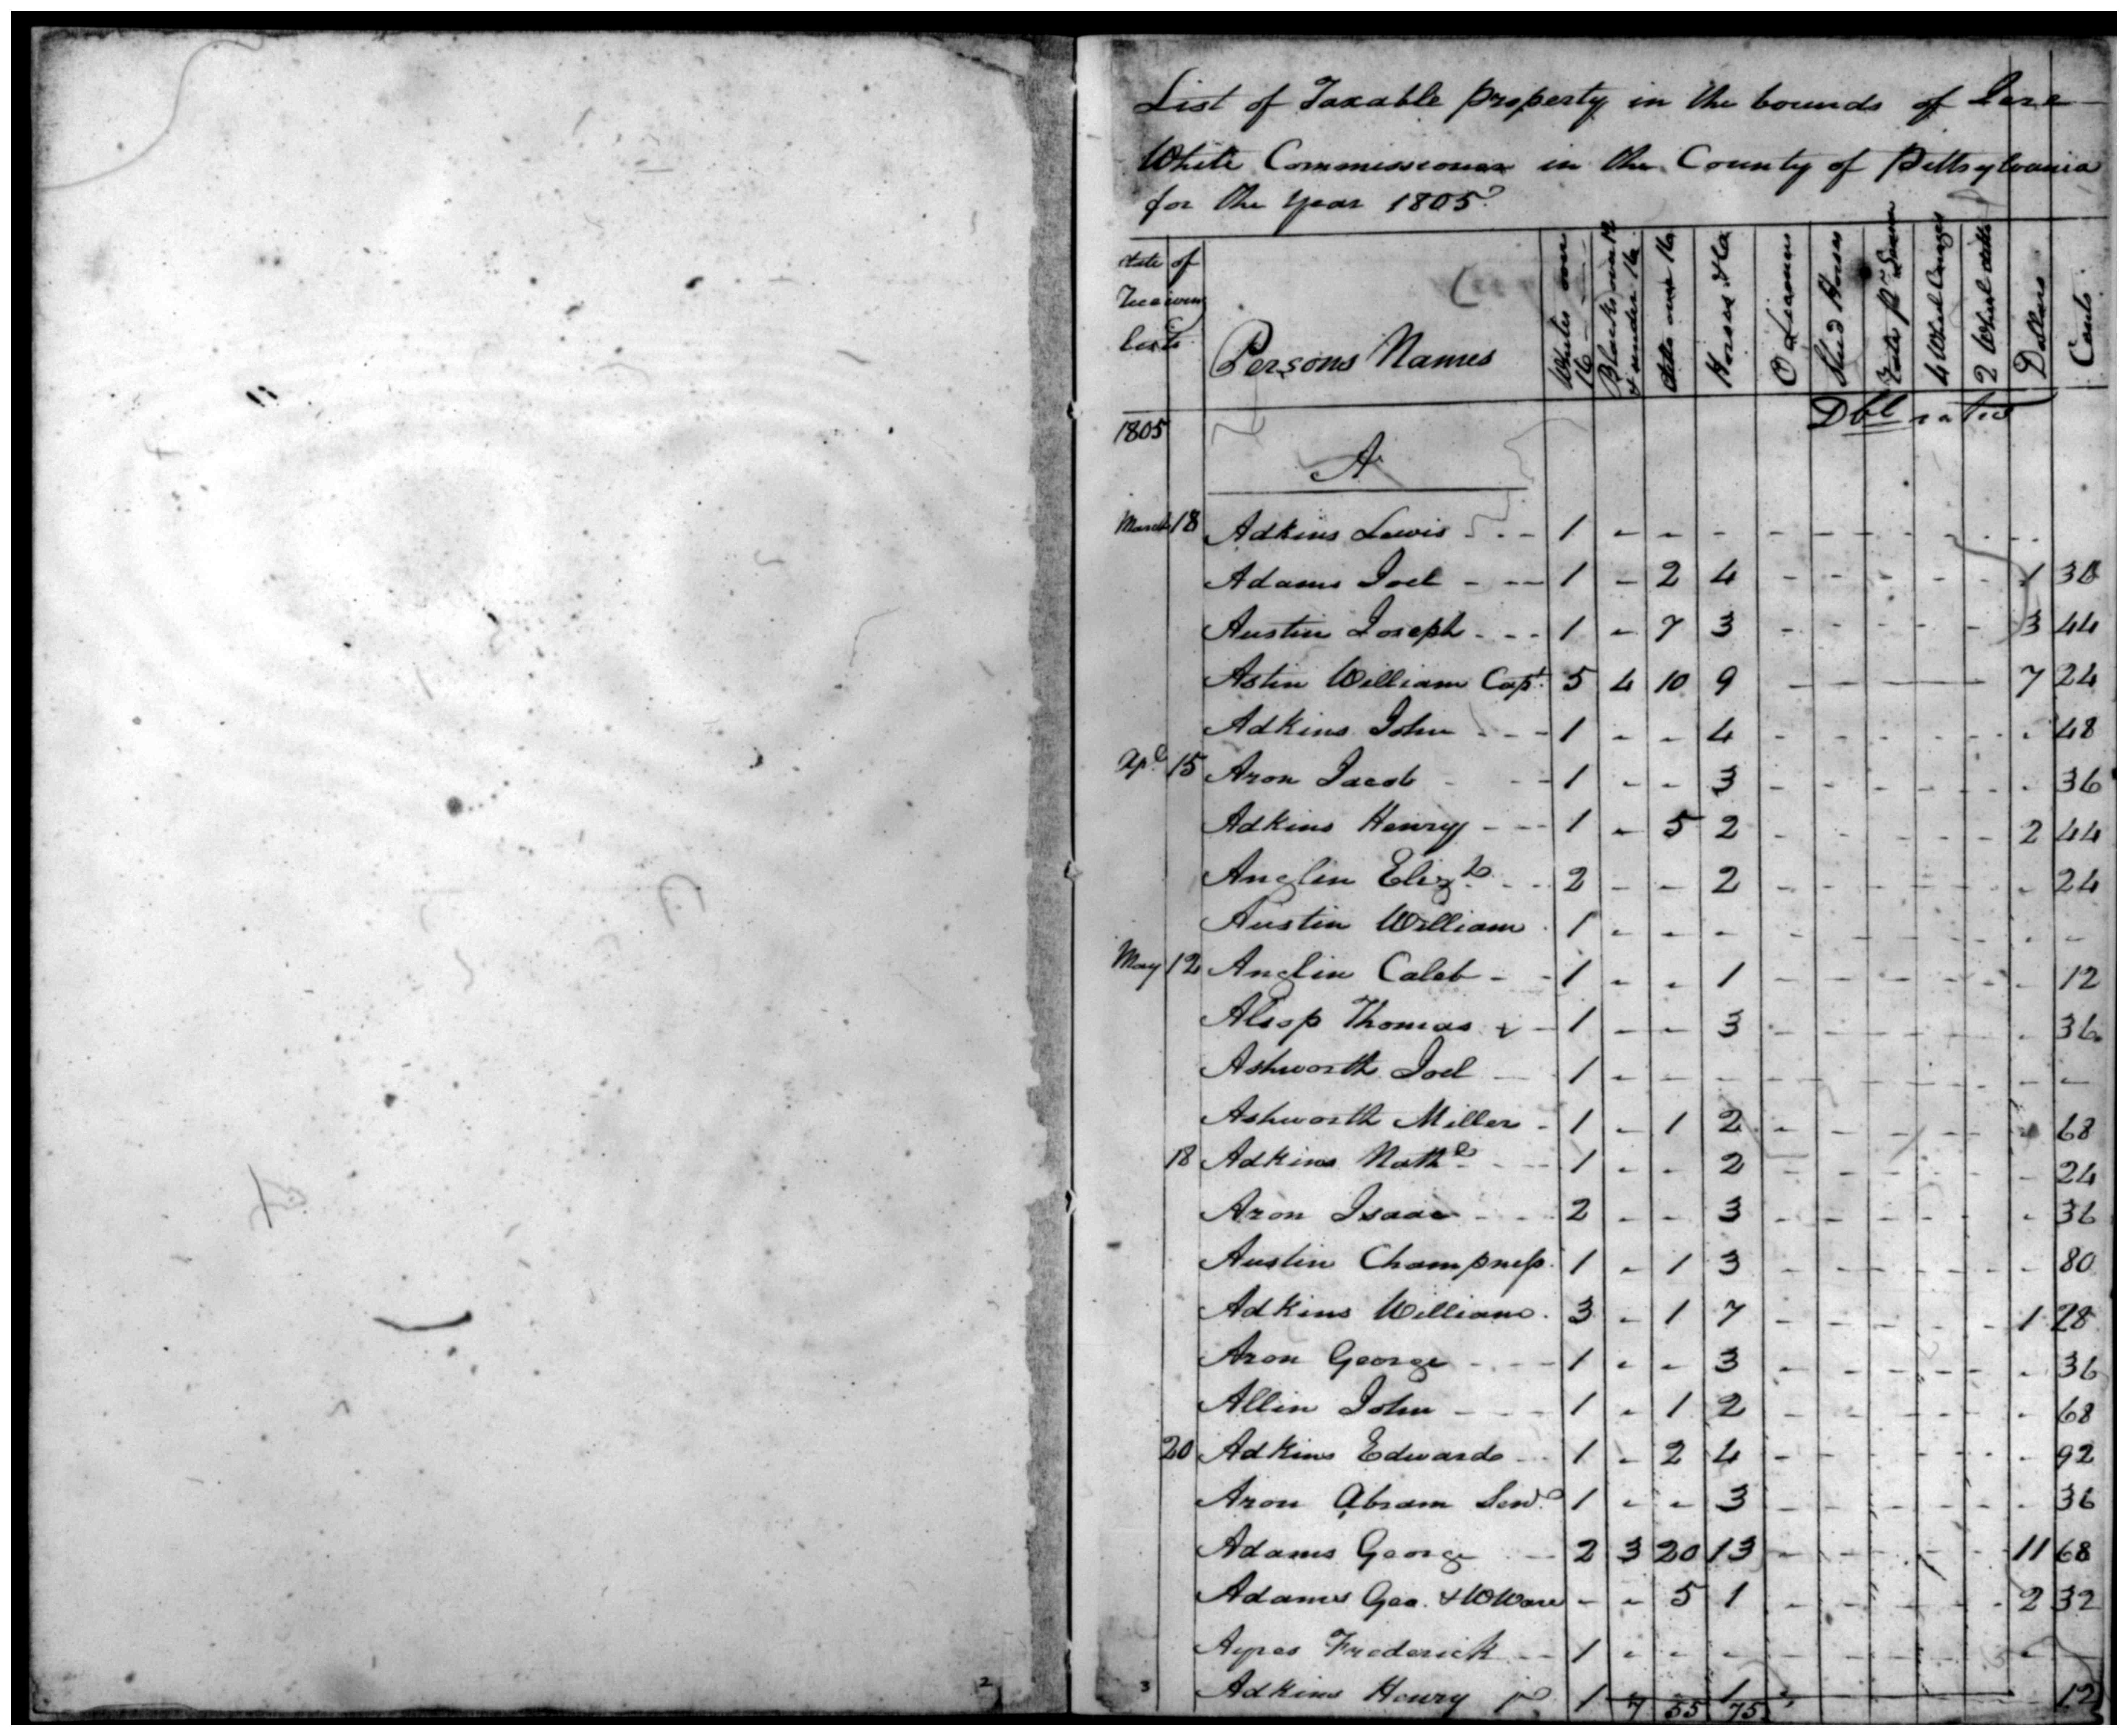 List of Taxable property in the bounds of
White Commissioner in the County of Pittsylvania
for the year 1805
date of Receiving Lists
Persons Names
Whites over 16
Blacks over 12 & under 16
ditto over 16
Horses &ca
O Licences
Stud Horses
Rate pr Season
4 Wheel Carriages
2 Wheel ditto
Dollars
Cents
1805 Dbl rated
A
March 18 Adkins Lewis - - - 1 - - - - - - - - - -
Adams Joel - - - 1 - 2 4 - - - - - 1 38
Austin Joseph - - - 1 - 7 3 - - - - - 3 44
Astin William Capt. 5 4 10 9 - - - 7 24
Adkins John - - - 1 - - 4 - - - - - - 48
Apl 15 Aron Jacob - - - 1 - - 3 - - - - - - 36
Adkins Henry - - - 1 - 5 2 - - - - - 2 44
Anglin Elizth - - 2 - - 2 - - - - - - 24
Austin William 1 - - - - - - - - - -
May 12 Anglin Caleb - - 1 - - 1 - - - - - - 12
Alsop Thomas - 1 - - 3 - - - - - - 36
Ashworth Joel - 1 - - - - - - - - - -
Ashworth Miller - 1 - 1 2 - - - - - - 68
18 Adkins Nathl - - - 1 - - 2 - - - - - - 24
Aron Isaac - - - 2 - - 3 - - - - - - 36
Austin Champness 1 - 1 3 - - - - - - 80
Adkins William 3 - 1 7 - - - - - 1 28
Aron George - - - 1 - - 3 - - - - - - 36
Allin John - - - 1 - 1 2 - - - - - - 68
20 Adkins Edward - - 1 - 2 4 - - - - - - 92
Aron Abram Senr 1 - - 3 - - - - - - 36
Adams George - 2 3 20 13 - - - - - 11 68
Adams Geo. & W Ware - - 5 1 - - - - - 2 32
Ayres Frederick - - 1 - - - - - - - - -
Adkins Henry jr 1 1 12
7 55 75
2
3